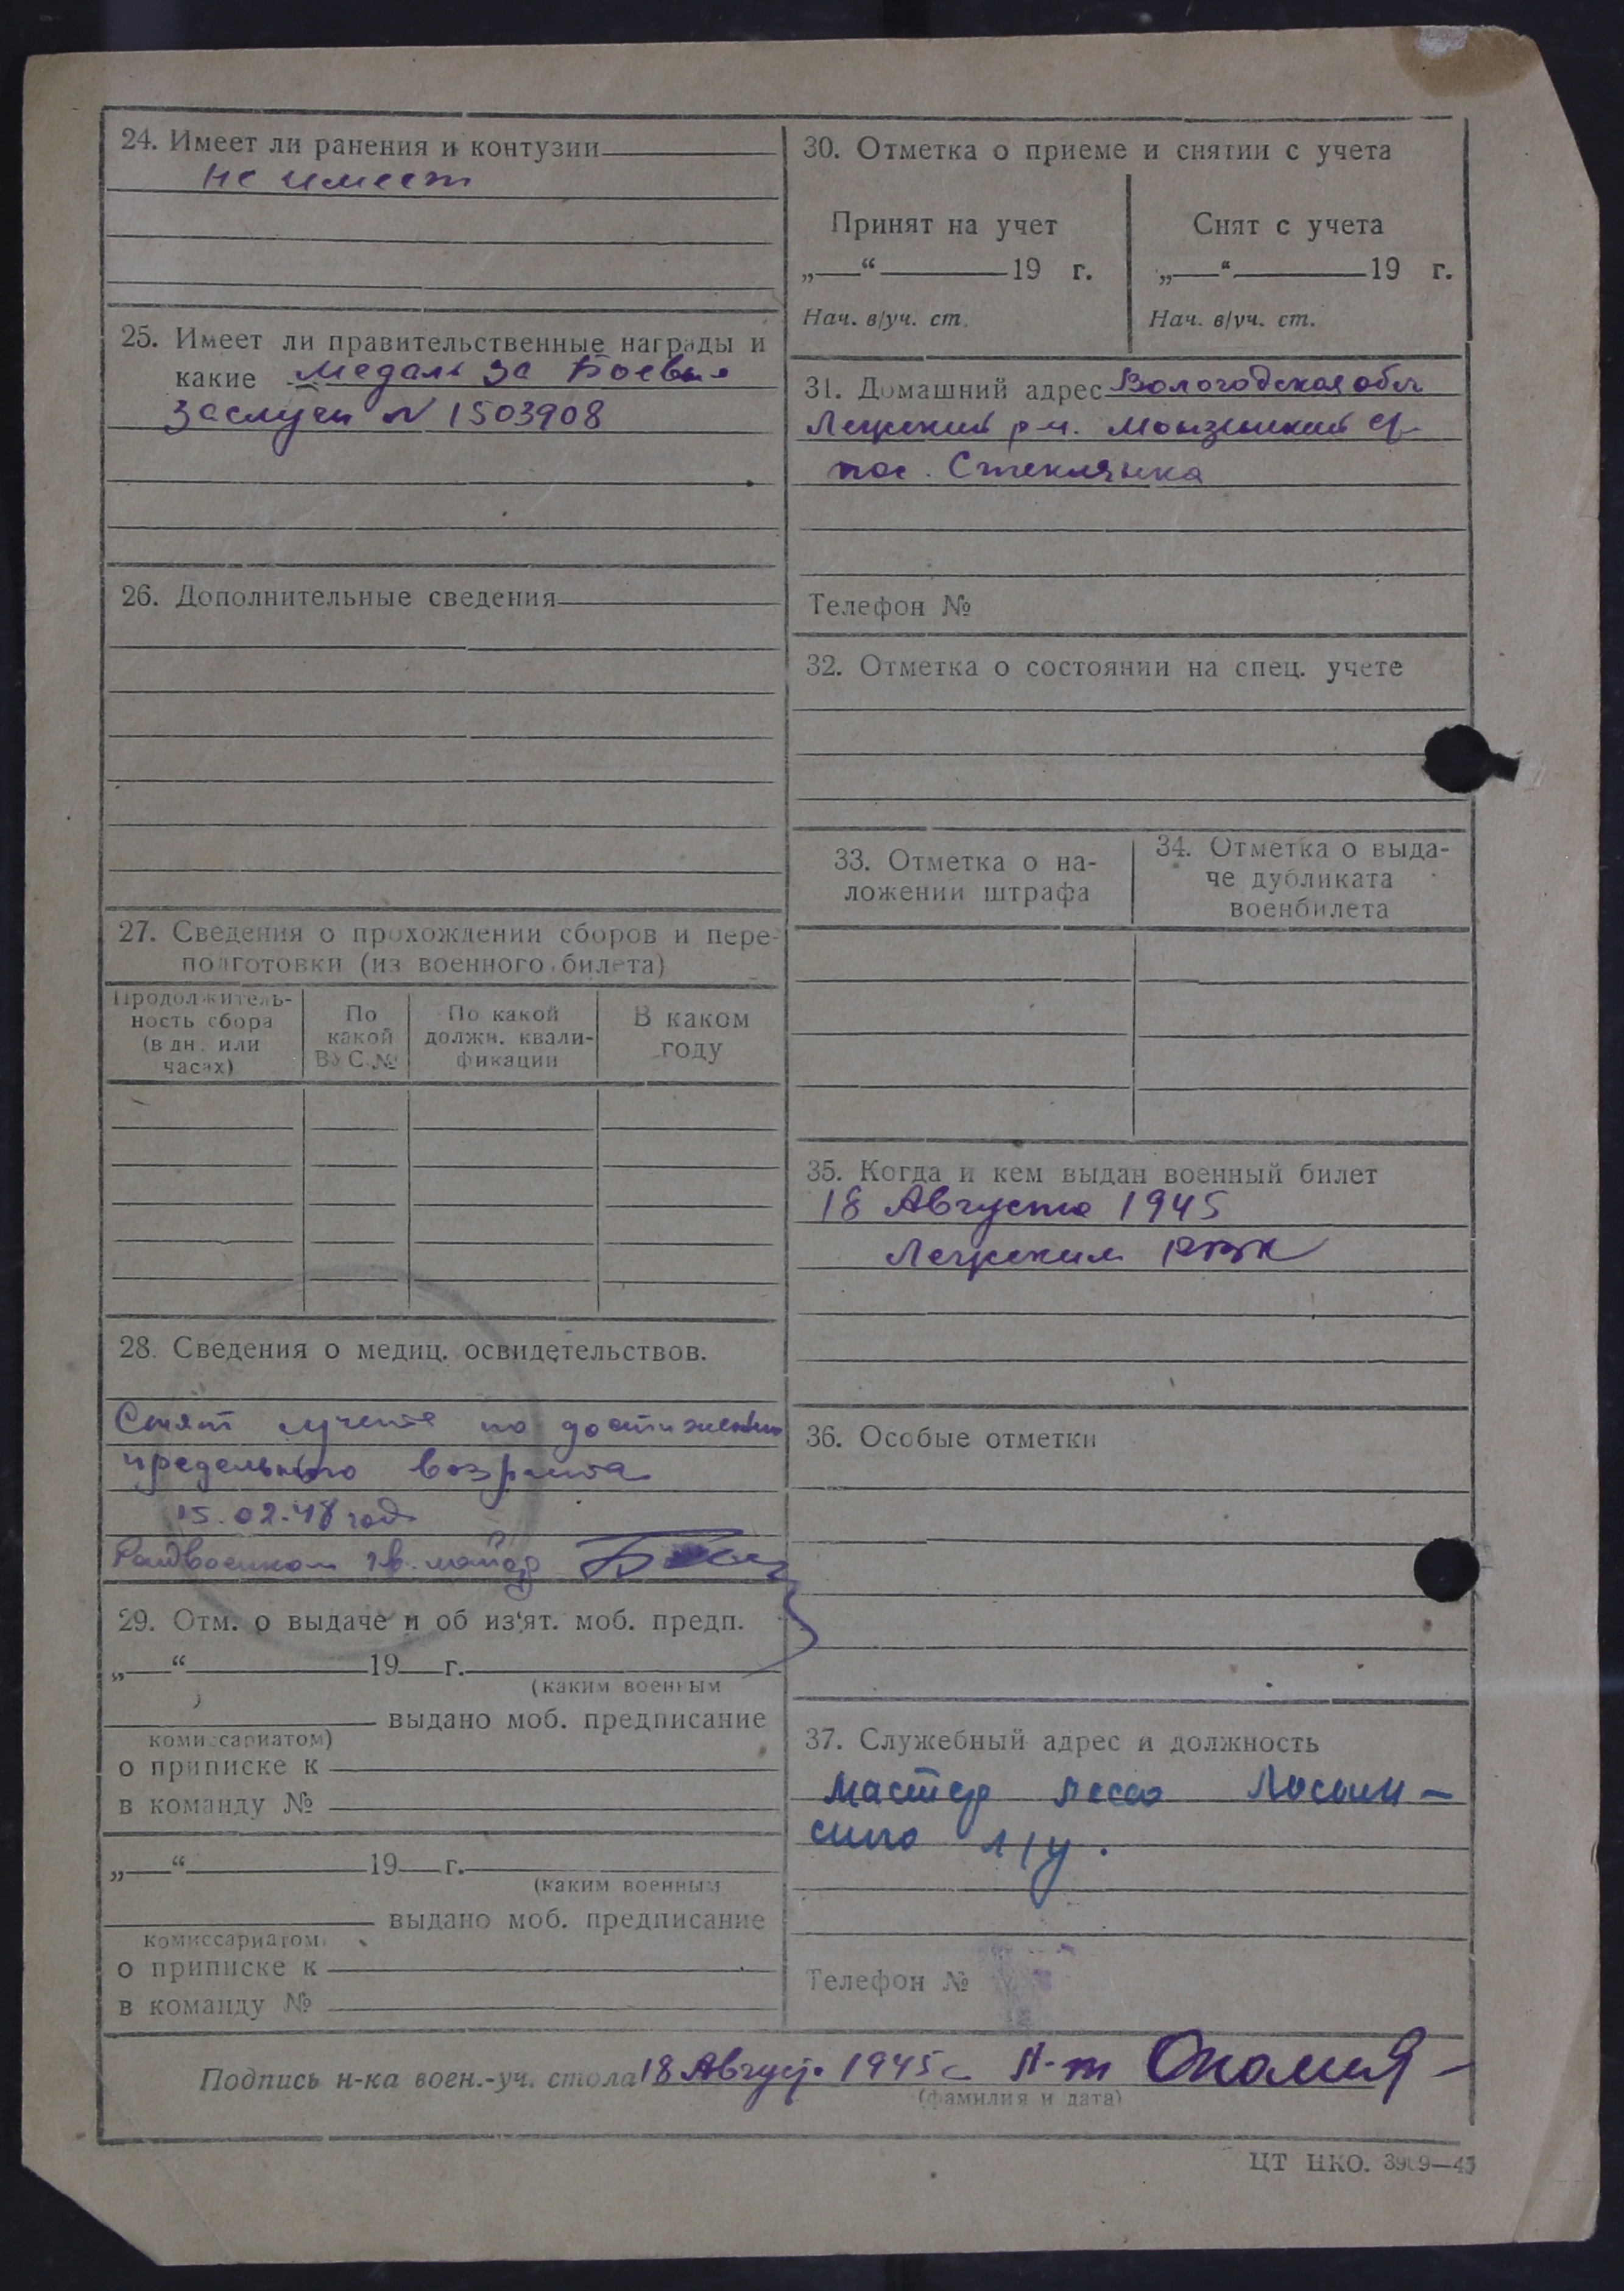 24. Имеет ли ранения и контузии
не имеет
25. Имеет ли правительственные награды и
какие Медаль За Боевые
Заслуги № 1503908
26. Дополнительные сведения
27. Сведения о прохождении сборов и пере-
подготовки (из военного билета)
Продолжитель-
ность сбора
(в дн. или
часах)
По
какой
ВУС №
По какой
должн. квали-
фикации
В каком
году
28. Сведения о медиц. освидетельствов.
Снят с учета по достижению
предельного возраста
15.02.48 год
Райвоенком гв. майор
29. Отм. о выдаче и об из'ят. моб. предп.
„—“ 19 г.
(каким военным
выдано моб. предписание
комиссариатом)
о приписке к
в команду №
„—“ 19 г.
(каким военным
выдано моб. предписание
комиссариатом)
о приписке к
в команду №
30. Отметка о приеме и снятии с учета
Принят на учет
„—“ 19 г.
Нач. в/уч. ст.
Снят с учета
„—“ 19 г.
Нач. в/уч. ст.
31. Домашний адрес Вологодская обл
Лежский р-н. Монзенский
пос. Стеклянка
Телефон №
32. Отметка о состоянии на спец. учете
33. Отметка о на-
ложении штрафа
34. Отметка о выда-
че дубликата
военбилета
35. Когда и кем выдан военный билет
18 Августа 1945
Лежским РВК
36. Особые отметки
37. Служебный адрес и должность
Мастер леса
л/у.
Телефон №
Подпись н-ка воен.-уч. стола 18 Август. 1945 г Л-т
(фамилия и дата)
ЦТ НКО. 3909—45